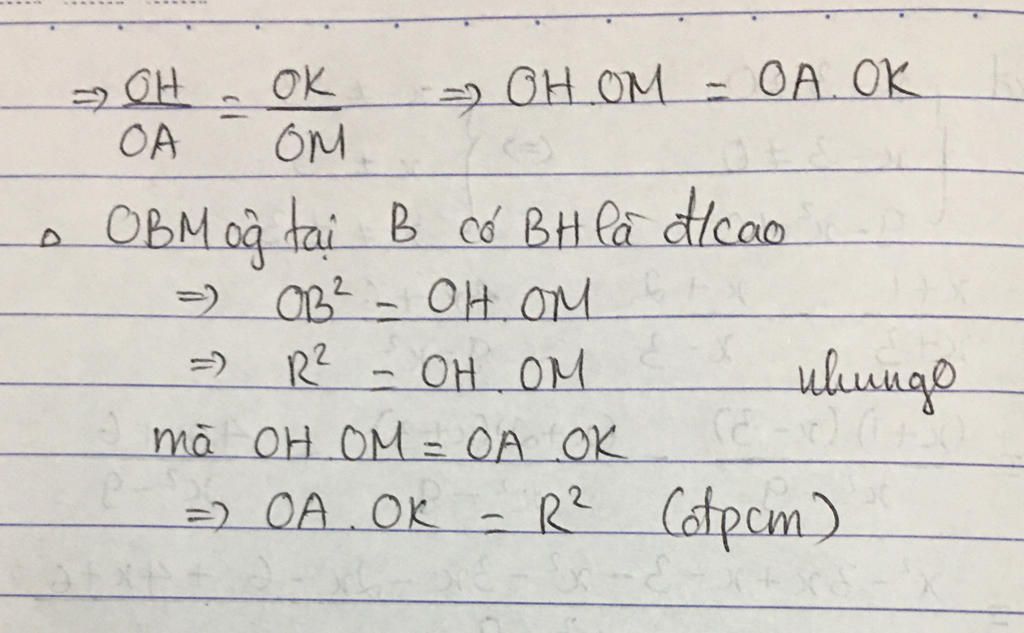 ⇒ OH/OA = OK/OM ⇒ OH.OM = OA.OK
△ OBM vg tại B có BH là đ/cao
⇒ OB² = OH.OM
⇒ R² = OH.OM nhung
mà OH.OM = OA.OK
⇒ OA.OK = R² (đpcm)